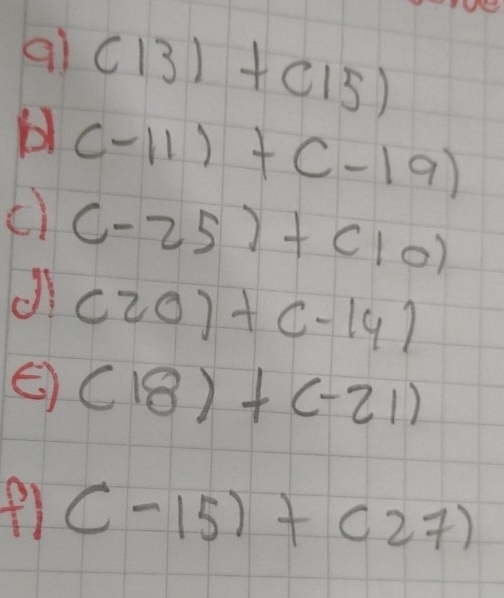 a) (13) + (15)
b) (-11) + (-19)
c) (-25) + (10)
d) (20) + (-14)
e) (18) + (-21)
f) (-15) + (27)